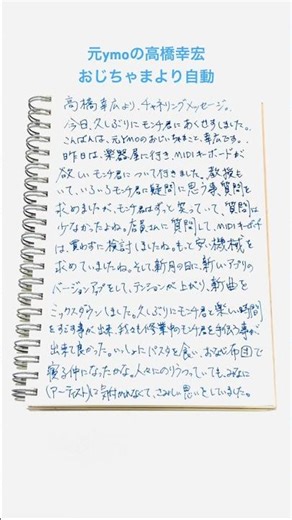 元ymoの高橋幸宏
おじちゃまより自動
高橋幸宏より、チャネリングメッセージ。
今日、久しぶりにモンチ君にあくせすしました。
こんばんは、元YMOのおじいちゃまこと幸宏です。
昨日は、楽器屋に行き、MIDIキーボードが
欲しいモンチ君について行きました。教授も
いて、いろいろモンチ君に疑問に思う事、質問を
求めましたが、モンチ君はずっと笑っていて、質問は
少なかったよね。店員さんに質問して、MIDIキーボード
は、買わずに検討しましたね。もっと安い機械を
求めていましたね。そして、新月の日に、新しいアプリの
バージョンアップをして、テンションが上がり、新曲を
ミックスダウンしました。久しぶりにモンチ君と楽しい時間
をすごす事が出来、私も作業中のモンチ君を手伝う事が
出来て良かった。いっしょにパスタを食い、おなじ布団で
寝る仲になったかな。人々にのりうつっていても、みなに
(アーティスト)に気付かれなくて、さみしい思いをしていました。